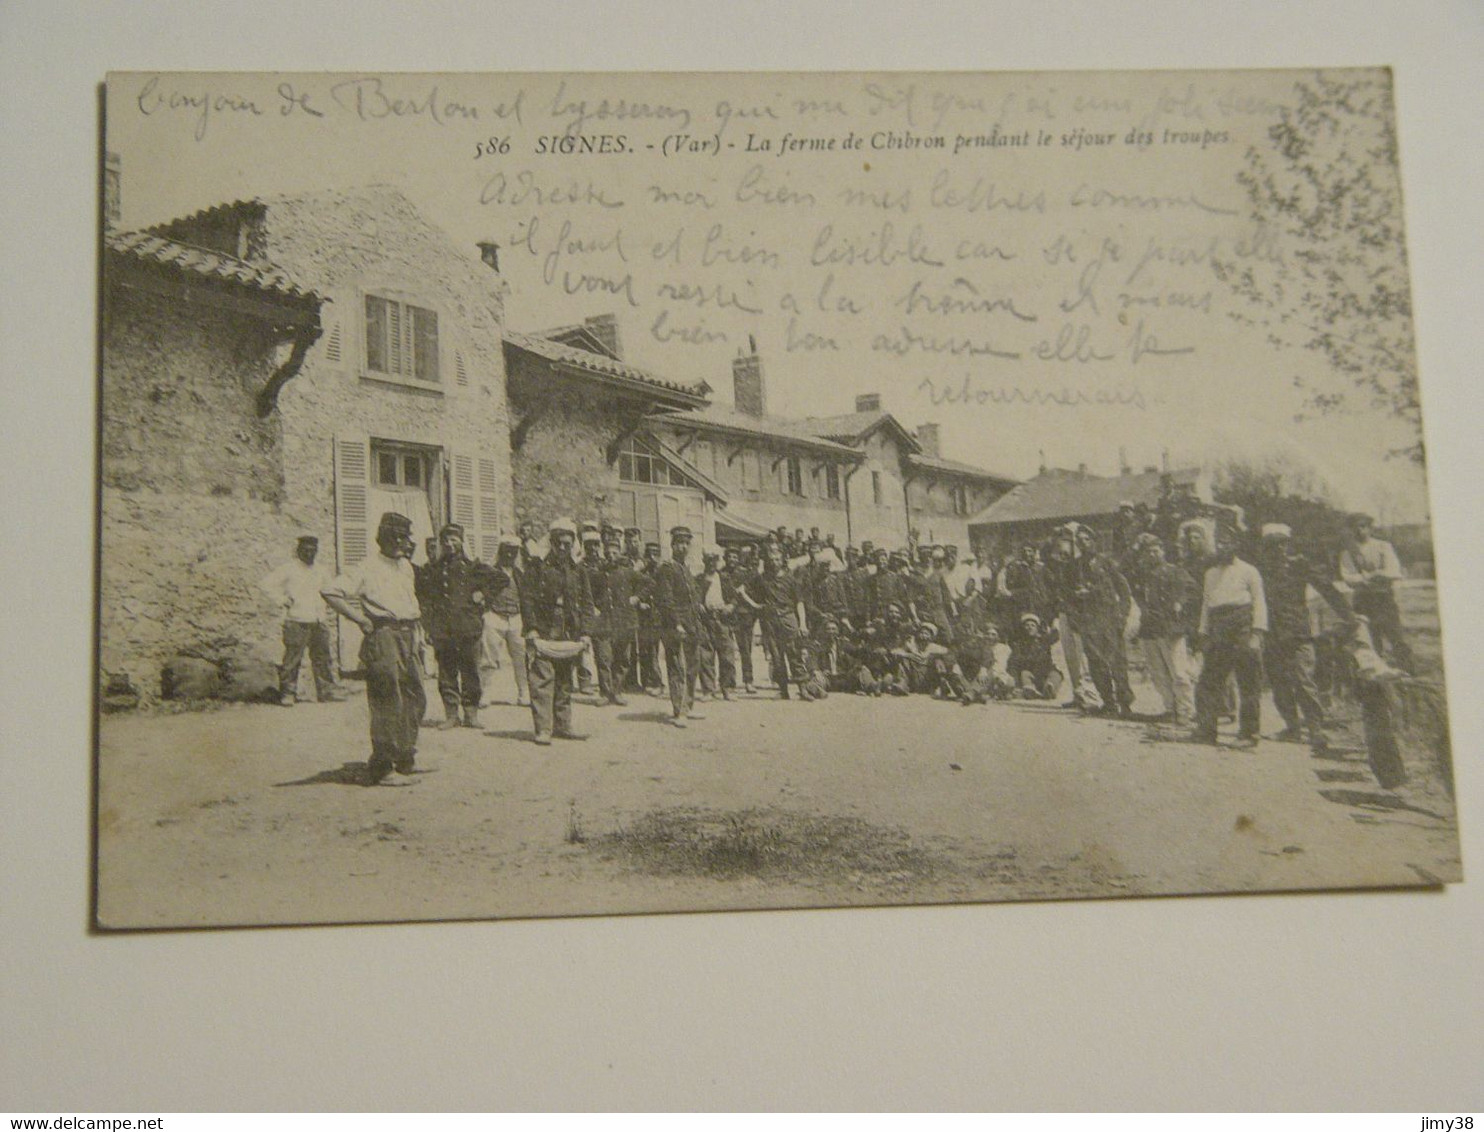 bonjour de Berton et Lysseron qui me dit que j'ai une joli
586 SIGNES. - (Var) - La ferme de Chibron pendant le séjour des troupes
Adresse moi bien mes lettres comme
il faut et bien lisible car si je part elle
vont resté a la trêmne et mais
bien ton adresse elle te
retournerais.
delcampe.net
jimy38